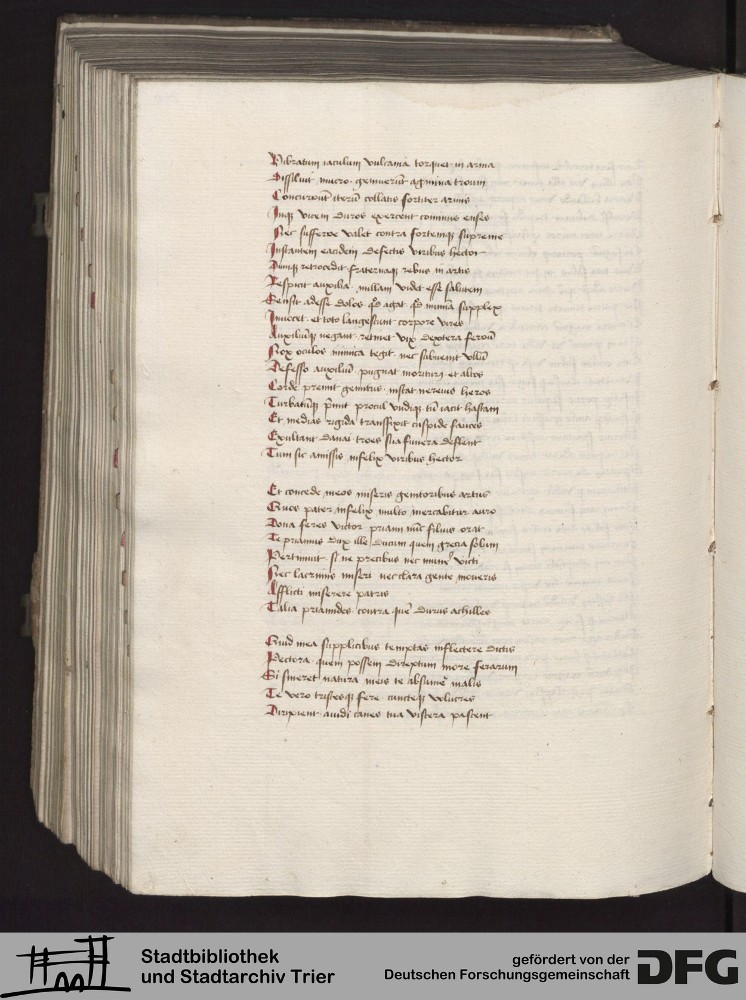 Vibratum iaculum vulcania torquet in arma
Dissiluit mucro gemuerūt agmina troum
Concurrūt iterū collatis fortiter armis
Inqȝ vicem duros exercent cominus enses
Nec sufferre valet contra fortemqȝ supreme
Instantem eaciden defectus viribus hector
Dumqȝ retrocedit fraternaqȝ rebus in artis
Respicit auxilia nullam vidit esse salutem
Sensit adesse dolos qͩ agat qͩ numīa supplex
Invocet et toto languescunt corpore vires
Auxiliūqȝ negant retinet vix dextera ferrū
Nox oculos inimica tegit nec subvenit vllū
Defesso auxiliū pugnat moriturꝰ et altos
Corde premit gemitus instat nereius heros
Turbatūqȝ p̄mit procul vndiqȝ tū iacit hastam
Et medias rigida transfixit cuspide fauces
Exultant danai troes sua funera deflent
Tum sic amissis infelix viribus hector
Et concede meos miseris genitoribus artus
Quos pater infelix multo mercabitur auro
Dona feres victor priami nūc filius orat
Te priamus dux ille ducum quem grecia solum
Pertimuit si ne precibus nec mune victi
Nec lacrimis miseri nec clara gente moveris
Afflicti miserere patris
Talia priamides contra quē durus achilles
Quid mea supplicibus temptas inflectere dictis
Pectora quem possem direptum more ferarum
Si sineret natura meis te absumē malis
Te vero tristesqȝ fere cuncteqȝ volucres
Diripient auidi canes tua viscera pascent
Stadtbibliothek
und Stadtarchiv Trier
gefördert von der
Deutschen Forschungsgemeinschaft
DFG